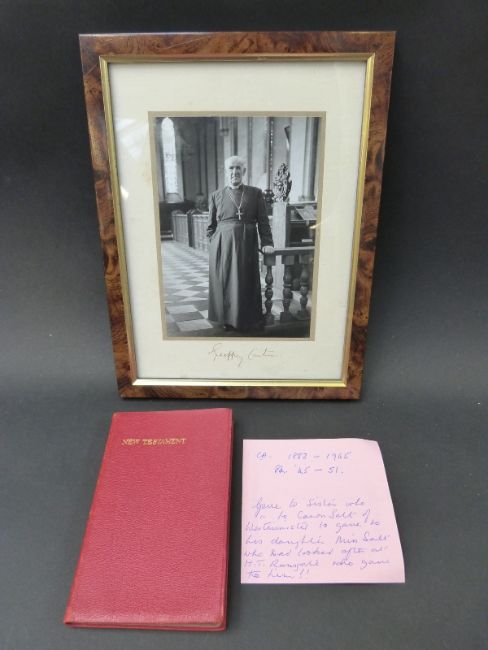 Geoffrey Cantuar
NEW TESTAMENT
1883 - 1945
'45 - 51.
Gave to Sister who
to Canon Salt of
Westminster to gave to
his daughter Miss Salt
who had looked after
H.T. Ramsgate who gave
to him!!